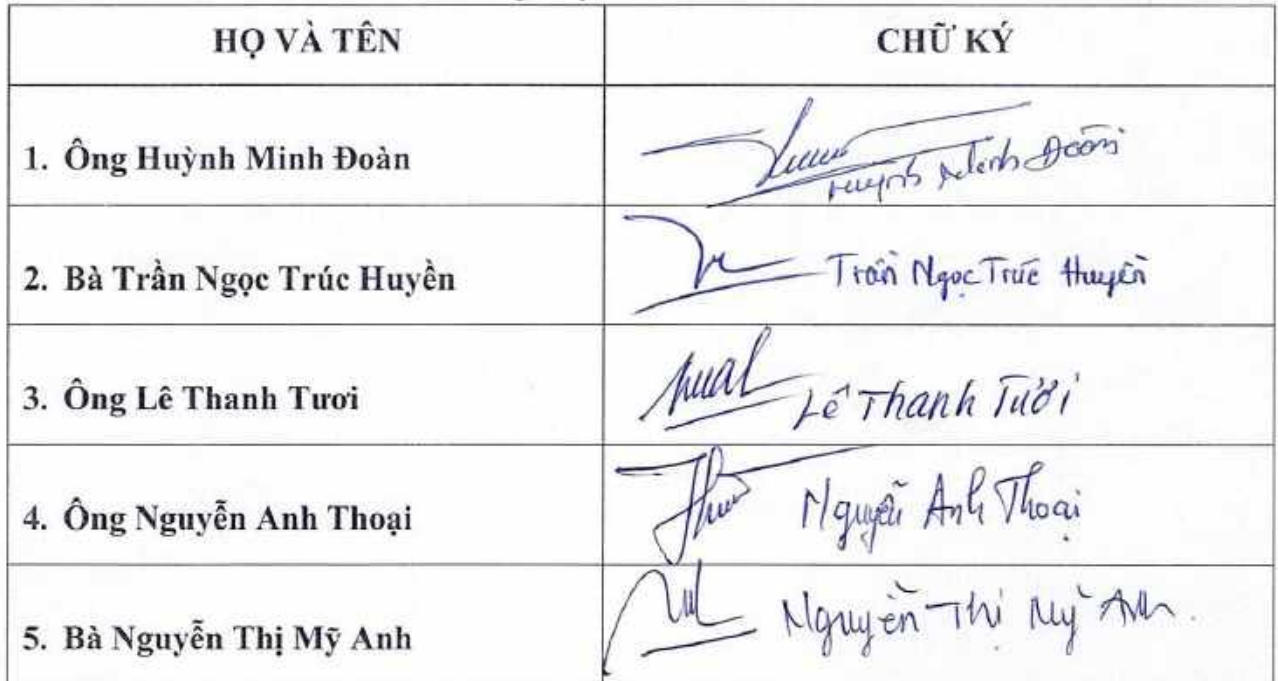 HỌ VÀ TÊN
CHỮ KÝ
1. Ông Huỳnh Minh Đoàn
Huỳnh Minh Đoàn
2. Bà Trần Ngọc Trúc Huyền
Trần Ngọc Trúc Huyền
3. Ông Lê Thanh Tươi
Lê Thanh Tươi
4. Ông Nguyễn Anh Thoại
Nguyễn Anh Thoại
5. Bà Nguyễn Thị Mỹ Anh
Nguyễn Thị Mỹ Anh.